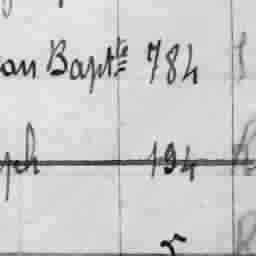 on Bapte 784
ph 194